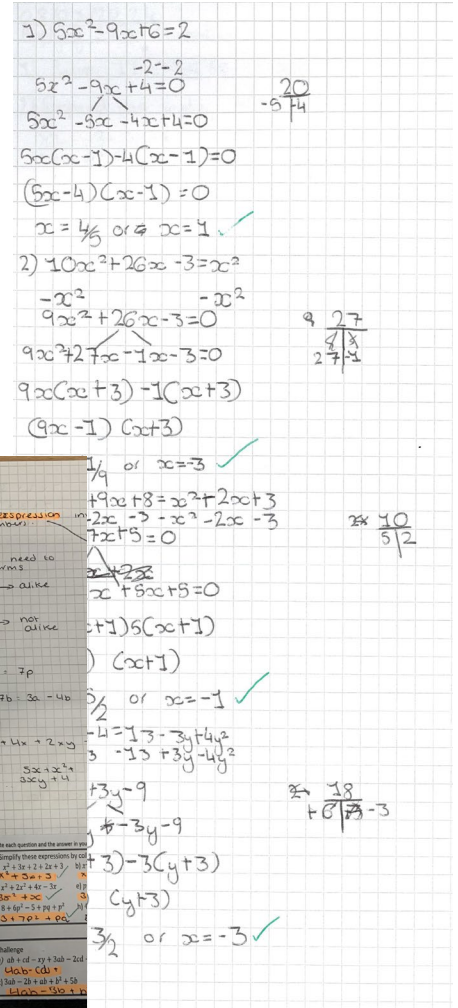 1) 5x²-9x+6=2
-2 -2
5x² -9x +4=0
20
-5 -4
5x² -5x -4x+4=0
5x(x-1)-4(x-1)=0
(5x-4)(x-1)=0
x = 4/5 or x=1 ✓
2) 10x²+26x -3=x²
-x² -x²
9x²+26x-3=0
27
27 -1
9x²+27x-1x-3=0
9x(x+3)-1(x+3)
(9x-1) (x+3)
1/9 or x=-3 ✓
+9x+8=x²+2x+3
-2x -3 -x² -2x -3
7x+5=0
10
5 2
x +5x+5=0
+1)5(x+1)
) (x+1)
5/2 or x=-1 ✓
-4=13-3y+4y²
3 -13 +3y-4y²
+3y-9
18
+6 -3
-3y-9
+3)-3(y+3)
(y+3)
3/2 or x=-3 ✓
expression
need to
rms
→ alike
→ not
alike
= 7p
7b = 3a - 4b
+ 4x + 2xy
5x + x² +
3xy + 4
te each question and the answer in you
Simplify these expressions by col
x² + 3x + 2 + 2x + 3
x² + 5x + 5
x² + 2x² + 4x - 3x
3x² + x
8 + 6p² - 5 + pq + p²
3 + 7p² + pq
hallenge
) ab + cd - xy + 3ab - 2cd
4ab - cd
) 3ab - 2b + ab + b² + 5b